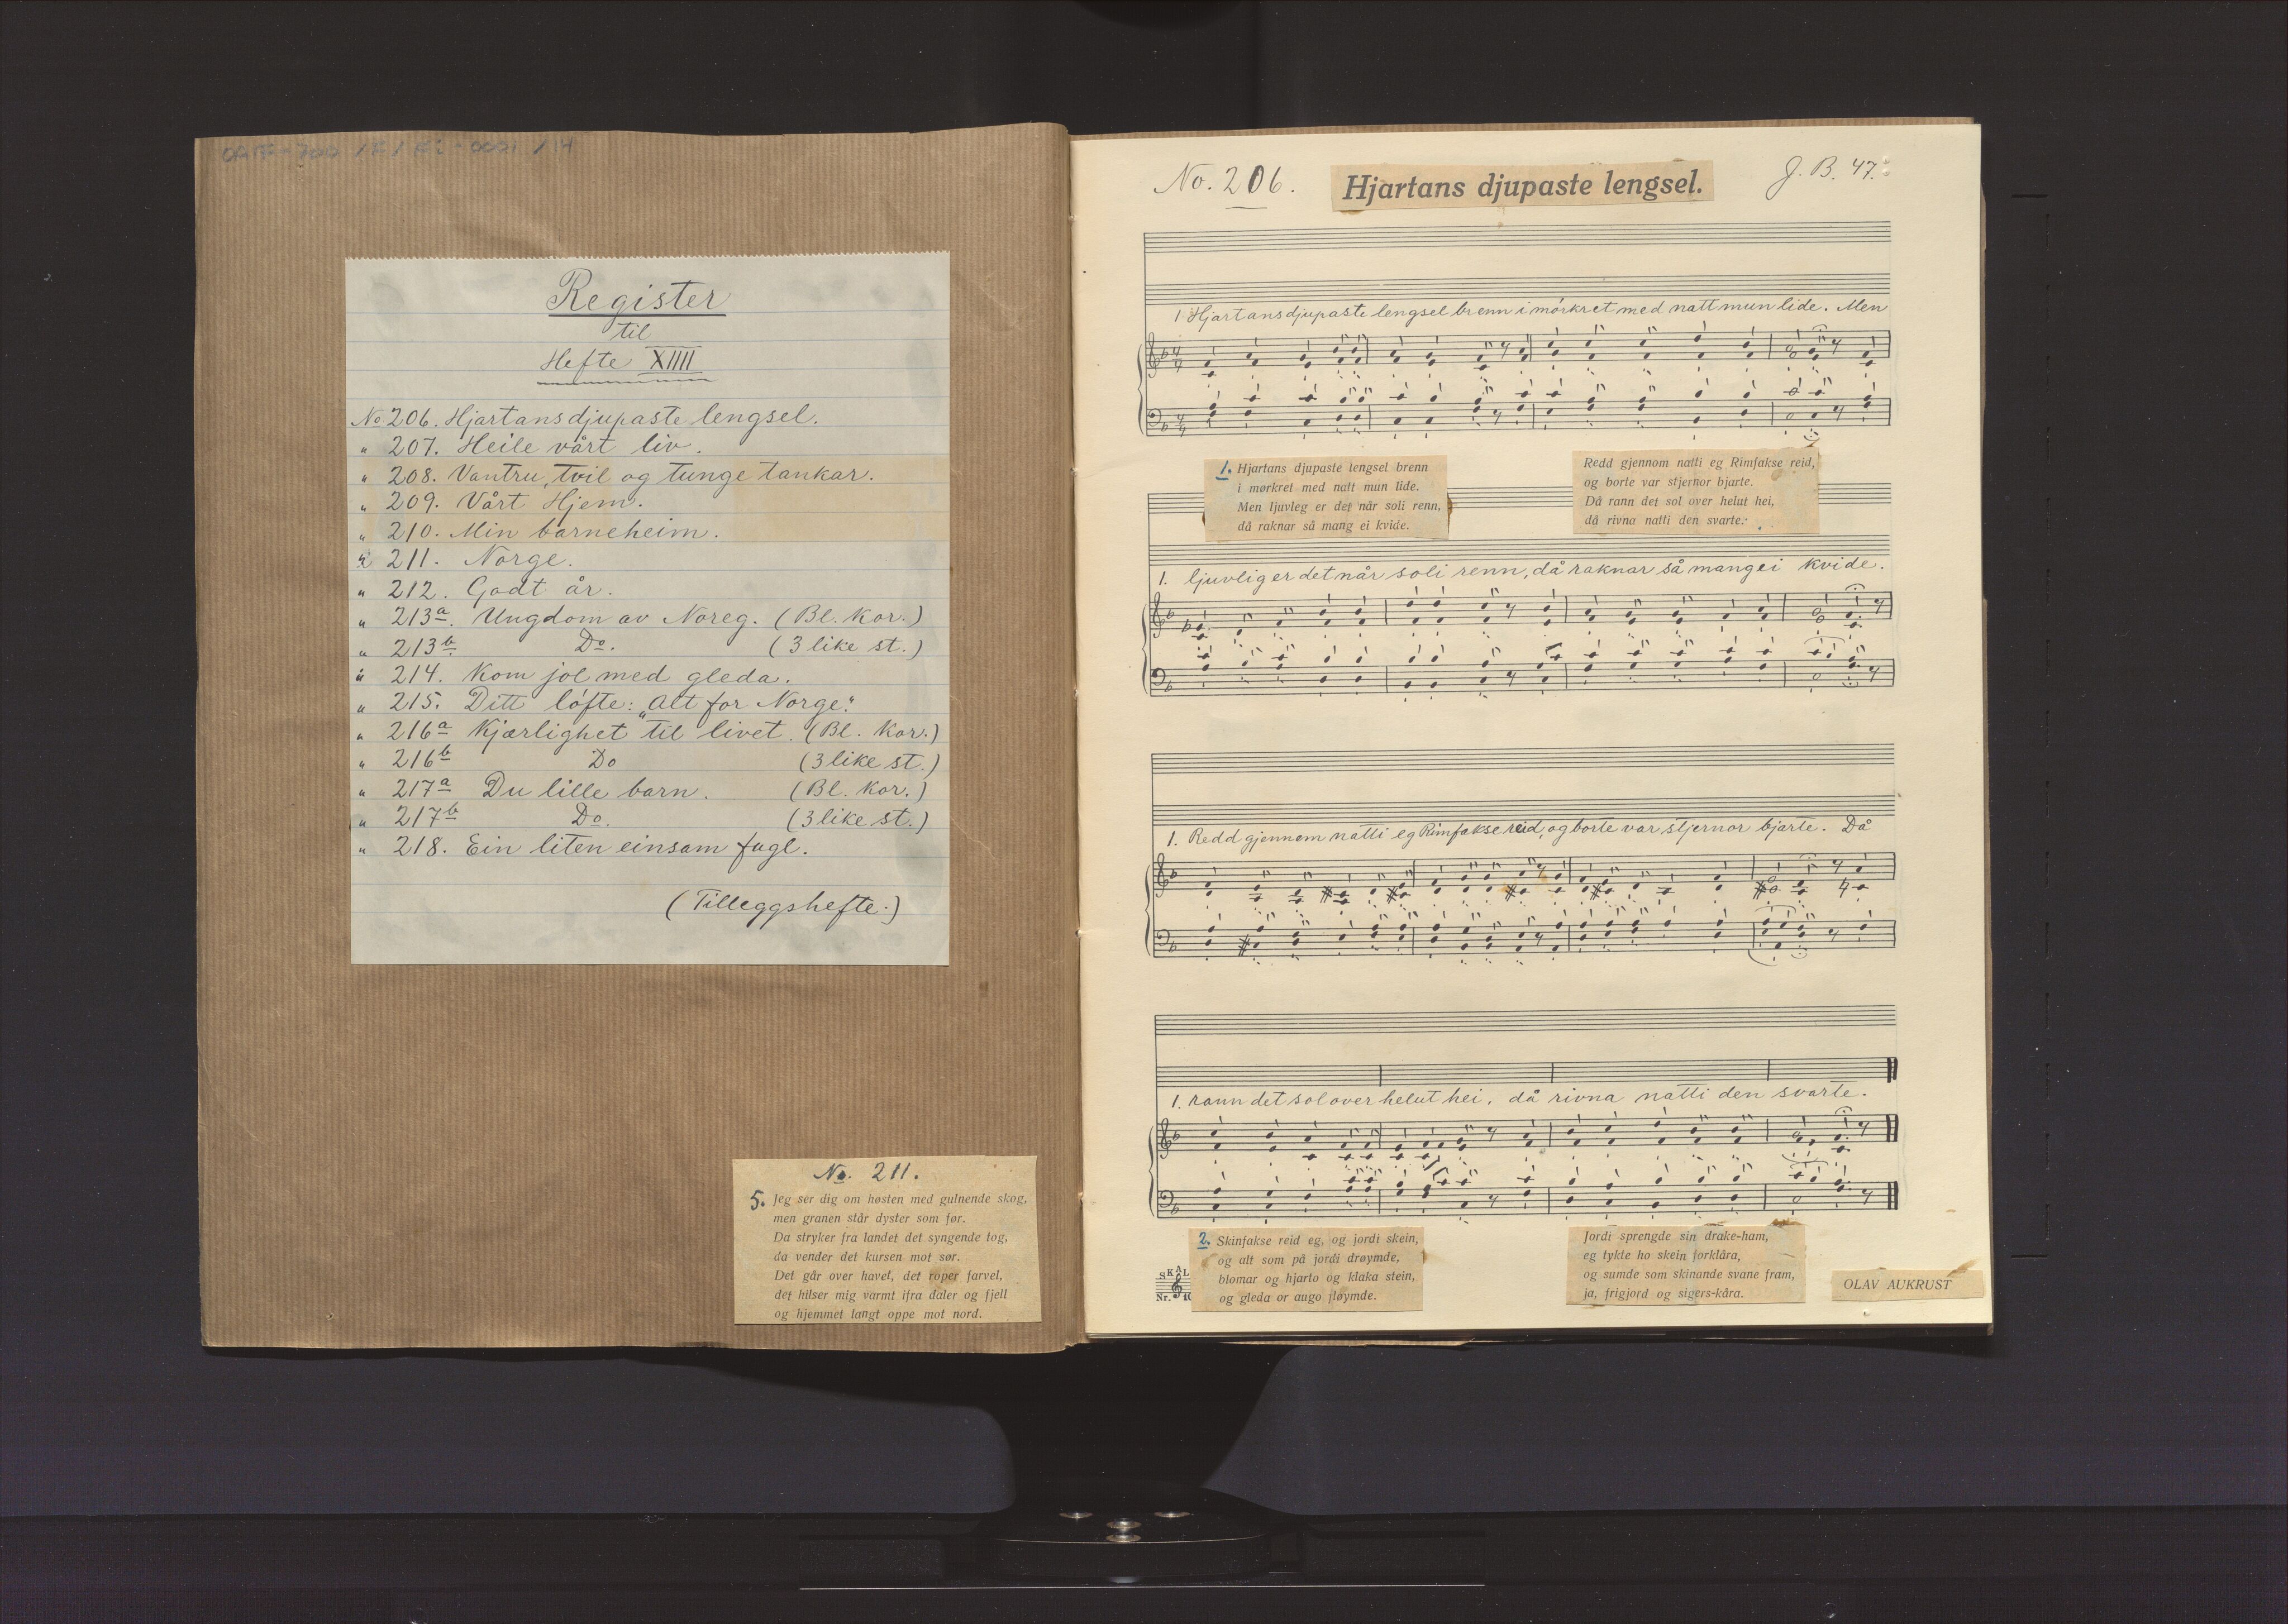 Register
til
Hefte XIIII
No 206. Hjartans djupaste lengsel.
" 207. Heile vårt liv.
" 208. Vantru, tvil og tunge tankar.
" 209. Vårt Hjem.
" 210. Min barneheim.
" 211. Norge.
" 212. Godt år.
" 213a. Ungdom av Noreg. (Bl. Kor.)
" 213b. Do. (3 like st.)
" 214. Kom jol med gleda.
" 215. Ditt løfte: „Alt for Norge."
" 216a Kjærlighet til livet. (Bl. Kor.)
" 216b Do (3 like st.)
" 217a Du lille barn. (Bl. Kor.)
" 217b Do. (3 like st.)
" 218. Ein liten einsam fugl.
(Tilleggshefte.)
No. 211.
5. Jeg ser dig om høsten med gulnende skog,
men granen står dyster som før.
Da stryker fra landet det syngende tog,
da vender det kursen mot sør.
Det går over havet, det roper farvel,
det hilser mig varmt ifra daler og fjell
og hjemmet langt oppe mot nord.
No. 206. Hjartans djupaste lengsel. J. B. 47.
1. Hjartans djupaste lengsel brenn i mørkret med natt mun lide. Men
1. Hjartans djupaste lengsel brenn
i mørkret med natt mun lide.
Men ljuvleg er det når soli renn,
då raknar så mang ei kvide.
Redd gjennom natti eg Rimfakse reid,
og borte var stjernor bjarte.
Då rann det sol over helut hei,
då rivna natti den svarte.
1. ljuvlig er det når soli renn, då raknar så mang ei kvide.
1. Redd gjennom natti eg Rimfakse reid, og borte var stjernor bjarte. Då
1. rann det sol over helut hei, då rivna natti den svarte.
2. Skinfakse reid eg, og jordi skein,
og alt som på jordi drøymde,
blomar og hjarto og klaka stein,
og gleda or augo fløymde.
Jordi sprengde sin drake-ham,
eg tykte ho skein forklåra,
og sumde som skinande svane fram,
ja, frigjord og sigers-kåra.
OLAV AUKRUST
SKÅL
Nr. 10